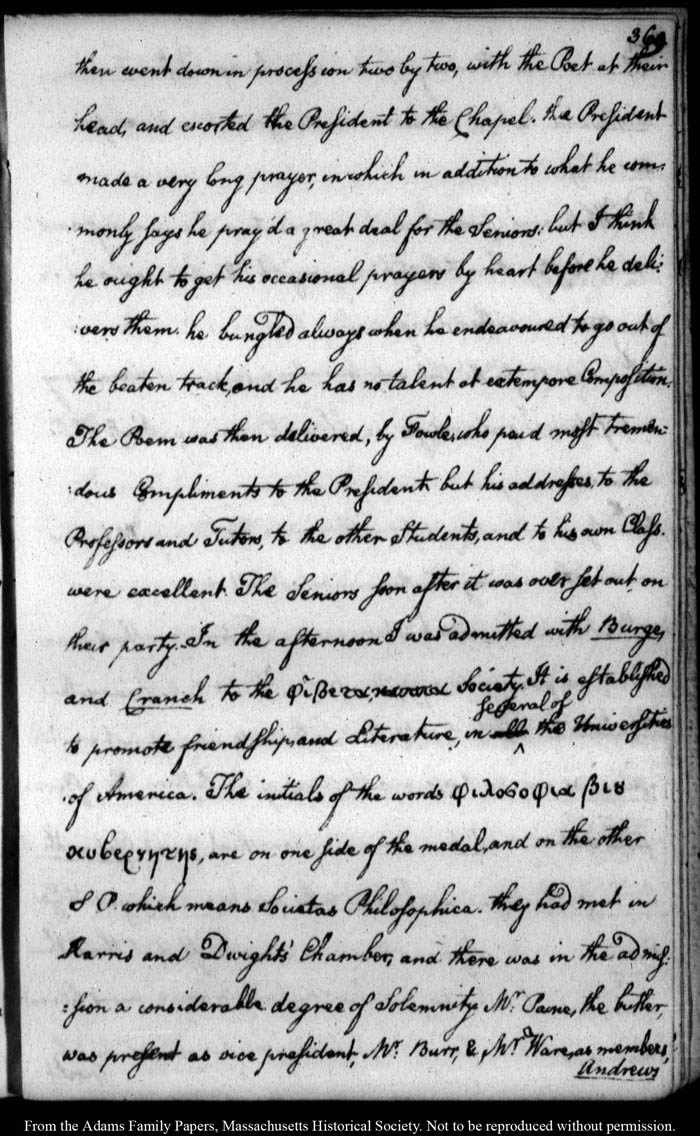 369
then went down in procession two by two, with the Poet at their
head, and escorted the President to the Chapel. the President
made a very long prayer, in which in addition to what he com:
:monly says he pray'd a great deal for the Seniors: but I think
he ought to get his occasional prayers by heart before he deli:
:vers them. he bungled always when he endeavoured to go out of
the beaten track, and he has no talent at extempore Composition.
The Poem was then delivered, by Fowle, who paid most tremen:
:dous Compliments to the President but his addresses, to the
Professors and Tutors, to the other Students, and to his own Class.
were excellent. The Seniors soon after it was over set out, on
their party. In the afternoon I was admitted with Burge,
and Cranch to the φι βετα, Society. It is established
several of
to promote friendship, and Literature, in all the Universities
of America. The initials of the words φιλοσοφια βιȣ
κυβερνητης, are on one side of the medal, and on the other
S P. which means Societas Philosophica. they had met in
Harris and Dwights' Chamber, and there was in the admis:
:sion a considerable degree of Solemnity Mr. Paine, the butler,
was present as vice president, Mr. Burr, & Mr. Ware, as members,
Andrews
From the Adams Family Papers, Massachusetts Historical Society. Not to be reproduced without permission.